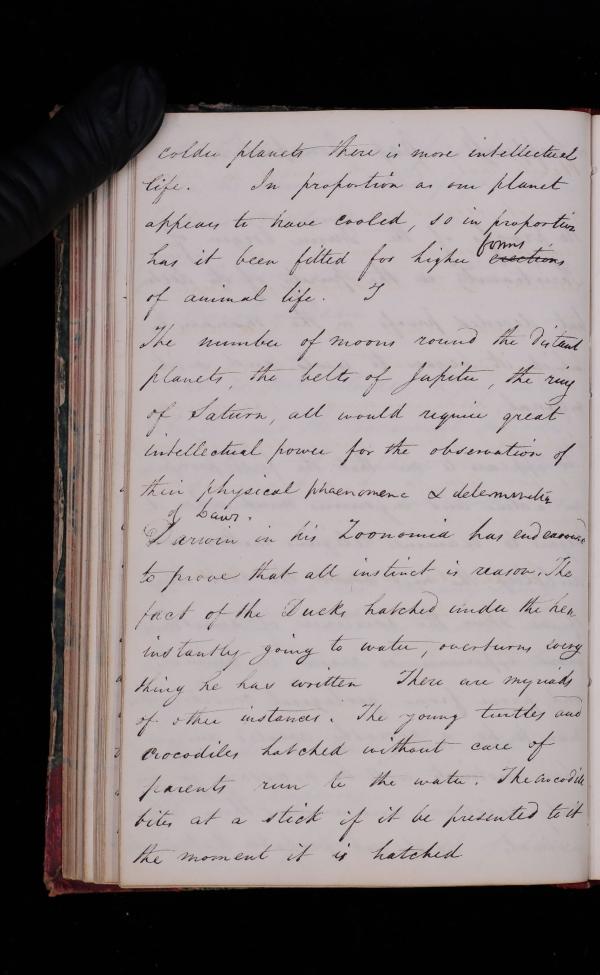 colder planets there is more intellectual
life. In proportion as our planet
appears to have cooled, so in proportion
has it been fitted for higher forms
of animal life. T
The number of moons round the distant
planets, the belts of Jupiter, the ring
of Saturn, all would require great
intellectual power for the observation of
their physical phaenomena & determination
of Laws.
Darwin in his Zoonomia has endeavoured
to prove that all instinct is reason. The
fact of the Ducks hatched under the hen
instantly going to water, overturns every
thing he has written There are myriads
of other instances. The young turtles and
crocodiles hatched without care of
parents run to the water. The crocodile
bites at a stick if it be presented to it
the moment it is hatched